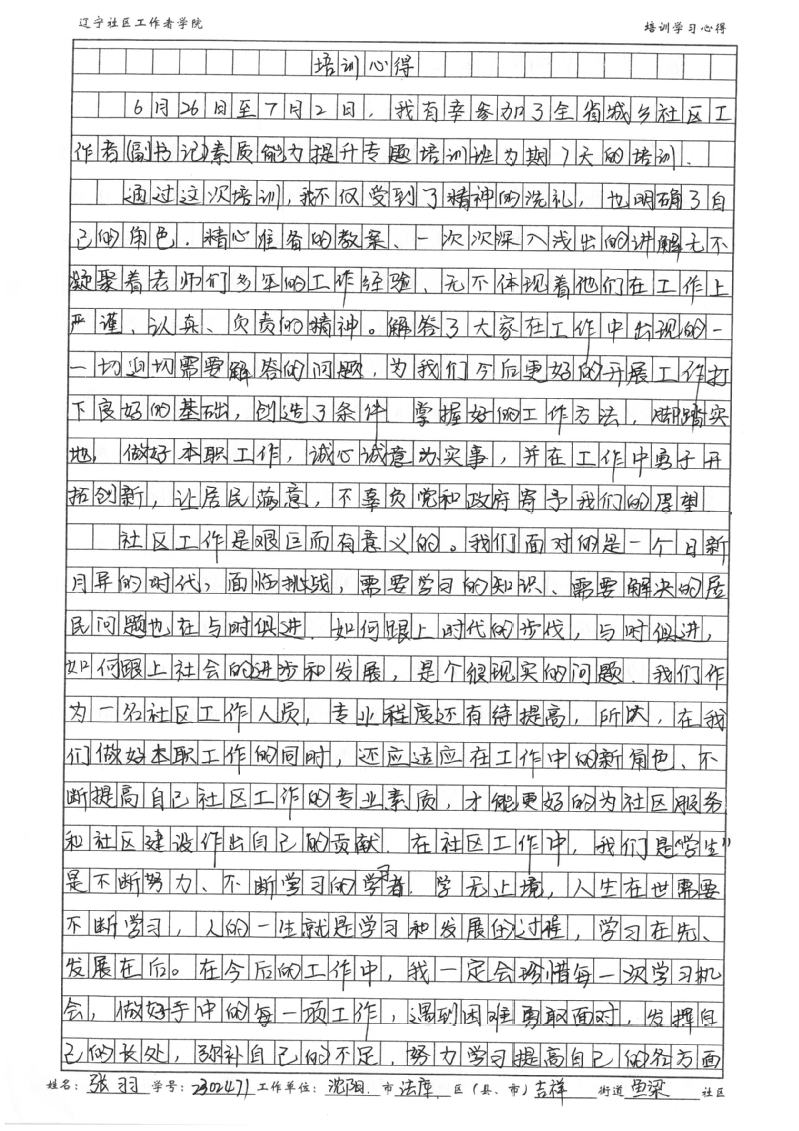 辽宁社区工作者学院 培训学习心得
培训心得
6月26日至7月2日，我有幸参加了全省城乡社区工
作者(副书记)素质能力提升专题培训班为期7天的培训．
通过这次培训，我不仅受到了精神的洗礼，也明确了自
己的角色．精心准备的教案、一次次深入浅出的讲解无不
凝聚着老师们多年的工作经验、无不体现着他们在工作上
严谨、认真、负责的精神。解答了大家在工作中出现的一
一切迫切需要解答的问题，为我们今后更好的开展工作打
下良好的基础，创造了条件 掌握好的工作方法，脚踏实
地，做好本职工作，诚心诚意为实事，并在工作中勇于开
拓创新，让居民满意，不辜负党和政府寄予我们的厚望
社区工作是艰巨而有意义的。我们面对的是一个日新
月异的时代，面临挑战，需要学习的知识、需要解决的居
民问题也在与时俱进．如何跟上时代的步伐，与时俱进，
如何跟上社会的进步和发展，是个很现实的问题．我们作
为一名社区工作人员，专业程度还有待提高，所以，在我
们做好本职工作的同时，还应适应在工作中的新角色、不
断提高自己社区工作的专业素质，才能更好的为社区服务
和社区建设作出自己的贡献．在社区工作中，我们是"学生"
是不断努力、不断学习的学习者．学无止境，人生在世需要
不断学习，人的一生就是学习和发展的过程，学习在先、
发展在后。在今后的工作中，我一定会珍惜每一次学习机
会，做好手中的每一项工作，遇到困难勇敢面对，发挥自
己的长处，弥补自己的不足，努力学习提高自己的各方面
姓名：张羽 学号：2302471 工作单位：沈阳．市 法库．区（县、市）吉祥 街道 鱼梁 社区